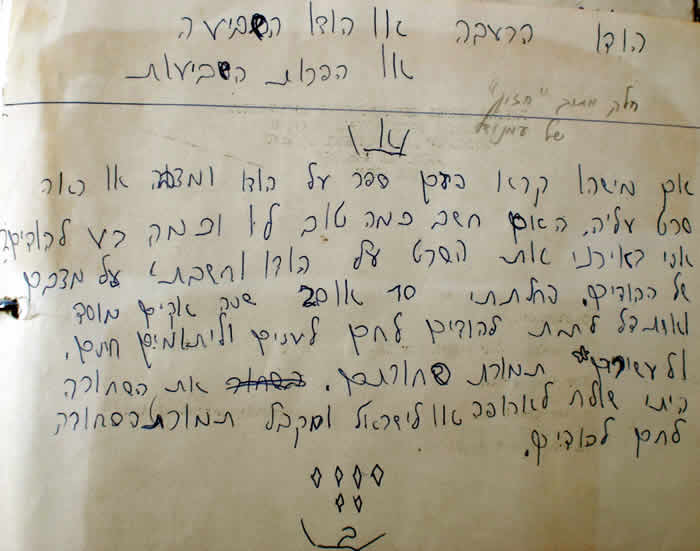 הודו הרעבה או הודו השביעה
או הפרות השביעות
חלק מתוך "חזיון"
של
א
אם מישהו קרא פעם ספר על הודו ומצבה או ראה
סרט עליה. האם חשב כמה טוב לו וכמה רע להודים?
אני ראיתי את הסרט על הודו וחשבתי על מצבם
של ההודים. החלטתי 10 או 20 שנה אקים מוסד
לתת להודים לחם לעניים וליתומים חינם.
ולעשירים תמורת סחורתם. את הסחורה
הייתי שולח לארופה או לישראל ומקבל תמורת הסחורה
לחם להודים.
ב